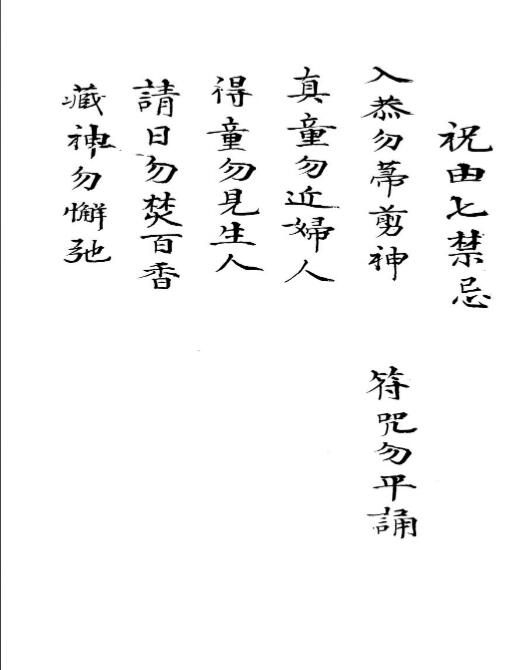 祝由七禁忌
入恭勿帶剪神
符咒勿平誦
真童勿近婦人
得童勿見生人
請日勿焚百香
藏神勿懈弛